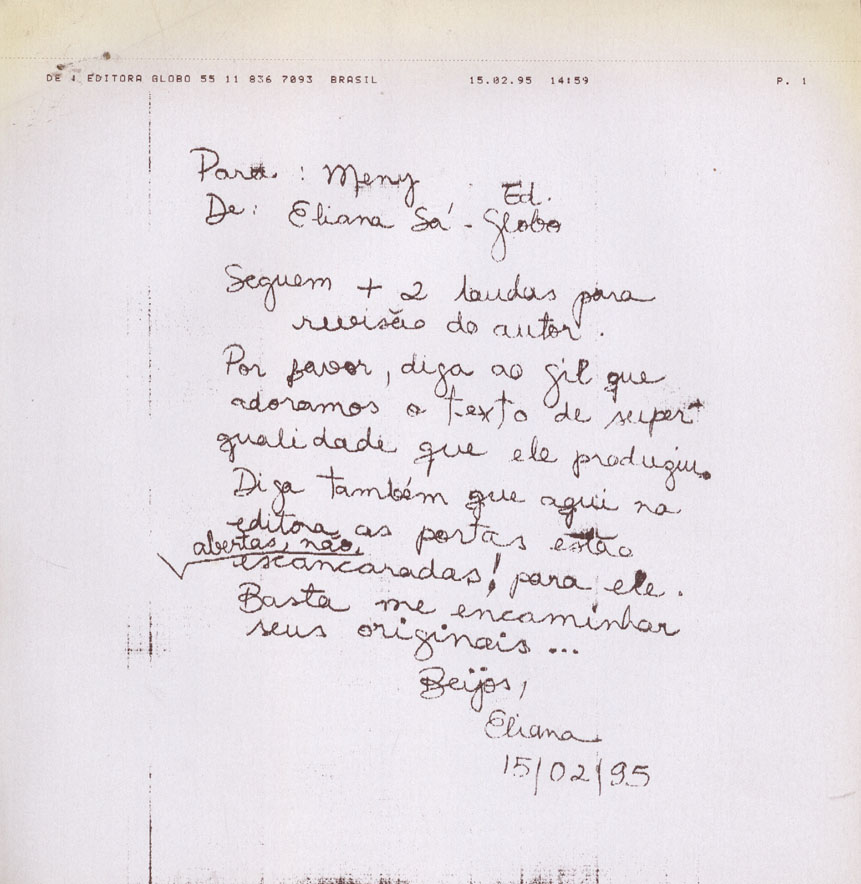 DE : EDITORA GLOBO 55 11 836 7093 BRASIL 15.02.95 14:59 P. 1
Para : Meny
De: Eliana Sá - Ed. Globo
Seguem + 2 laudas para
revisão do autor.
Por favor, diga ao Gil que
adoramos o texto de super
qualidade que ele produziu.
Diga também que aqui na
editora as portas estão
abertas, não,
escancaradas! para ele.
Basta me encaminhar
seus originais...
Beijos,
Eliana
15/02/95